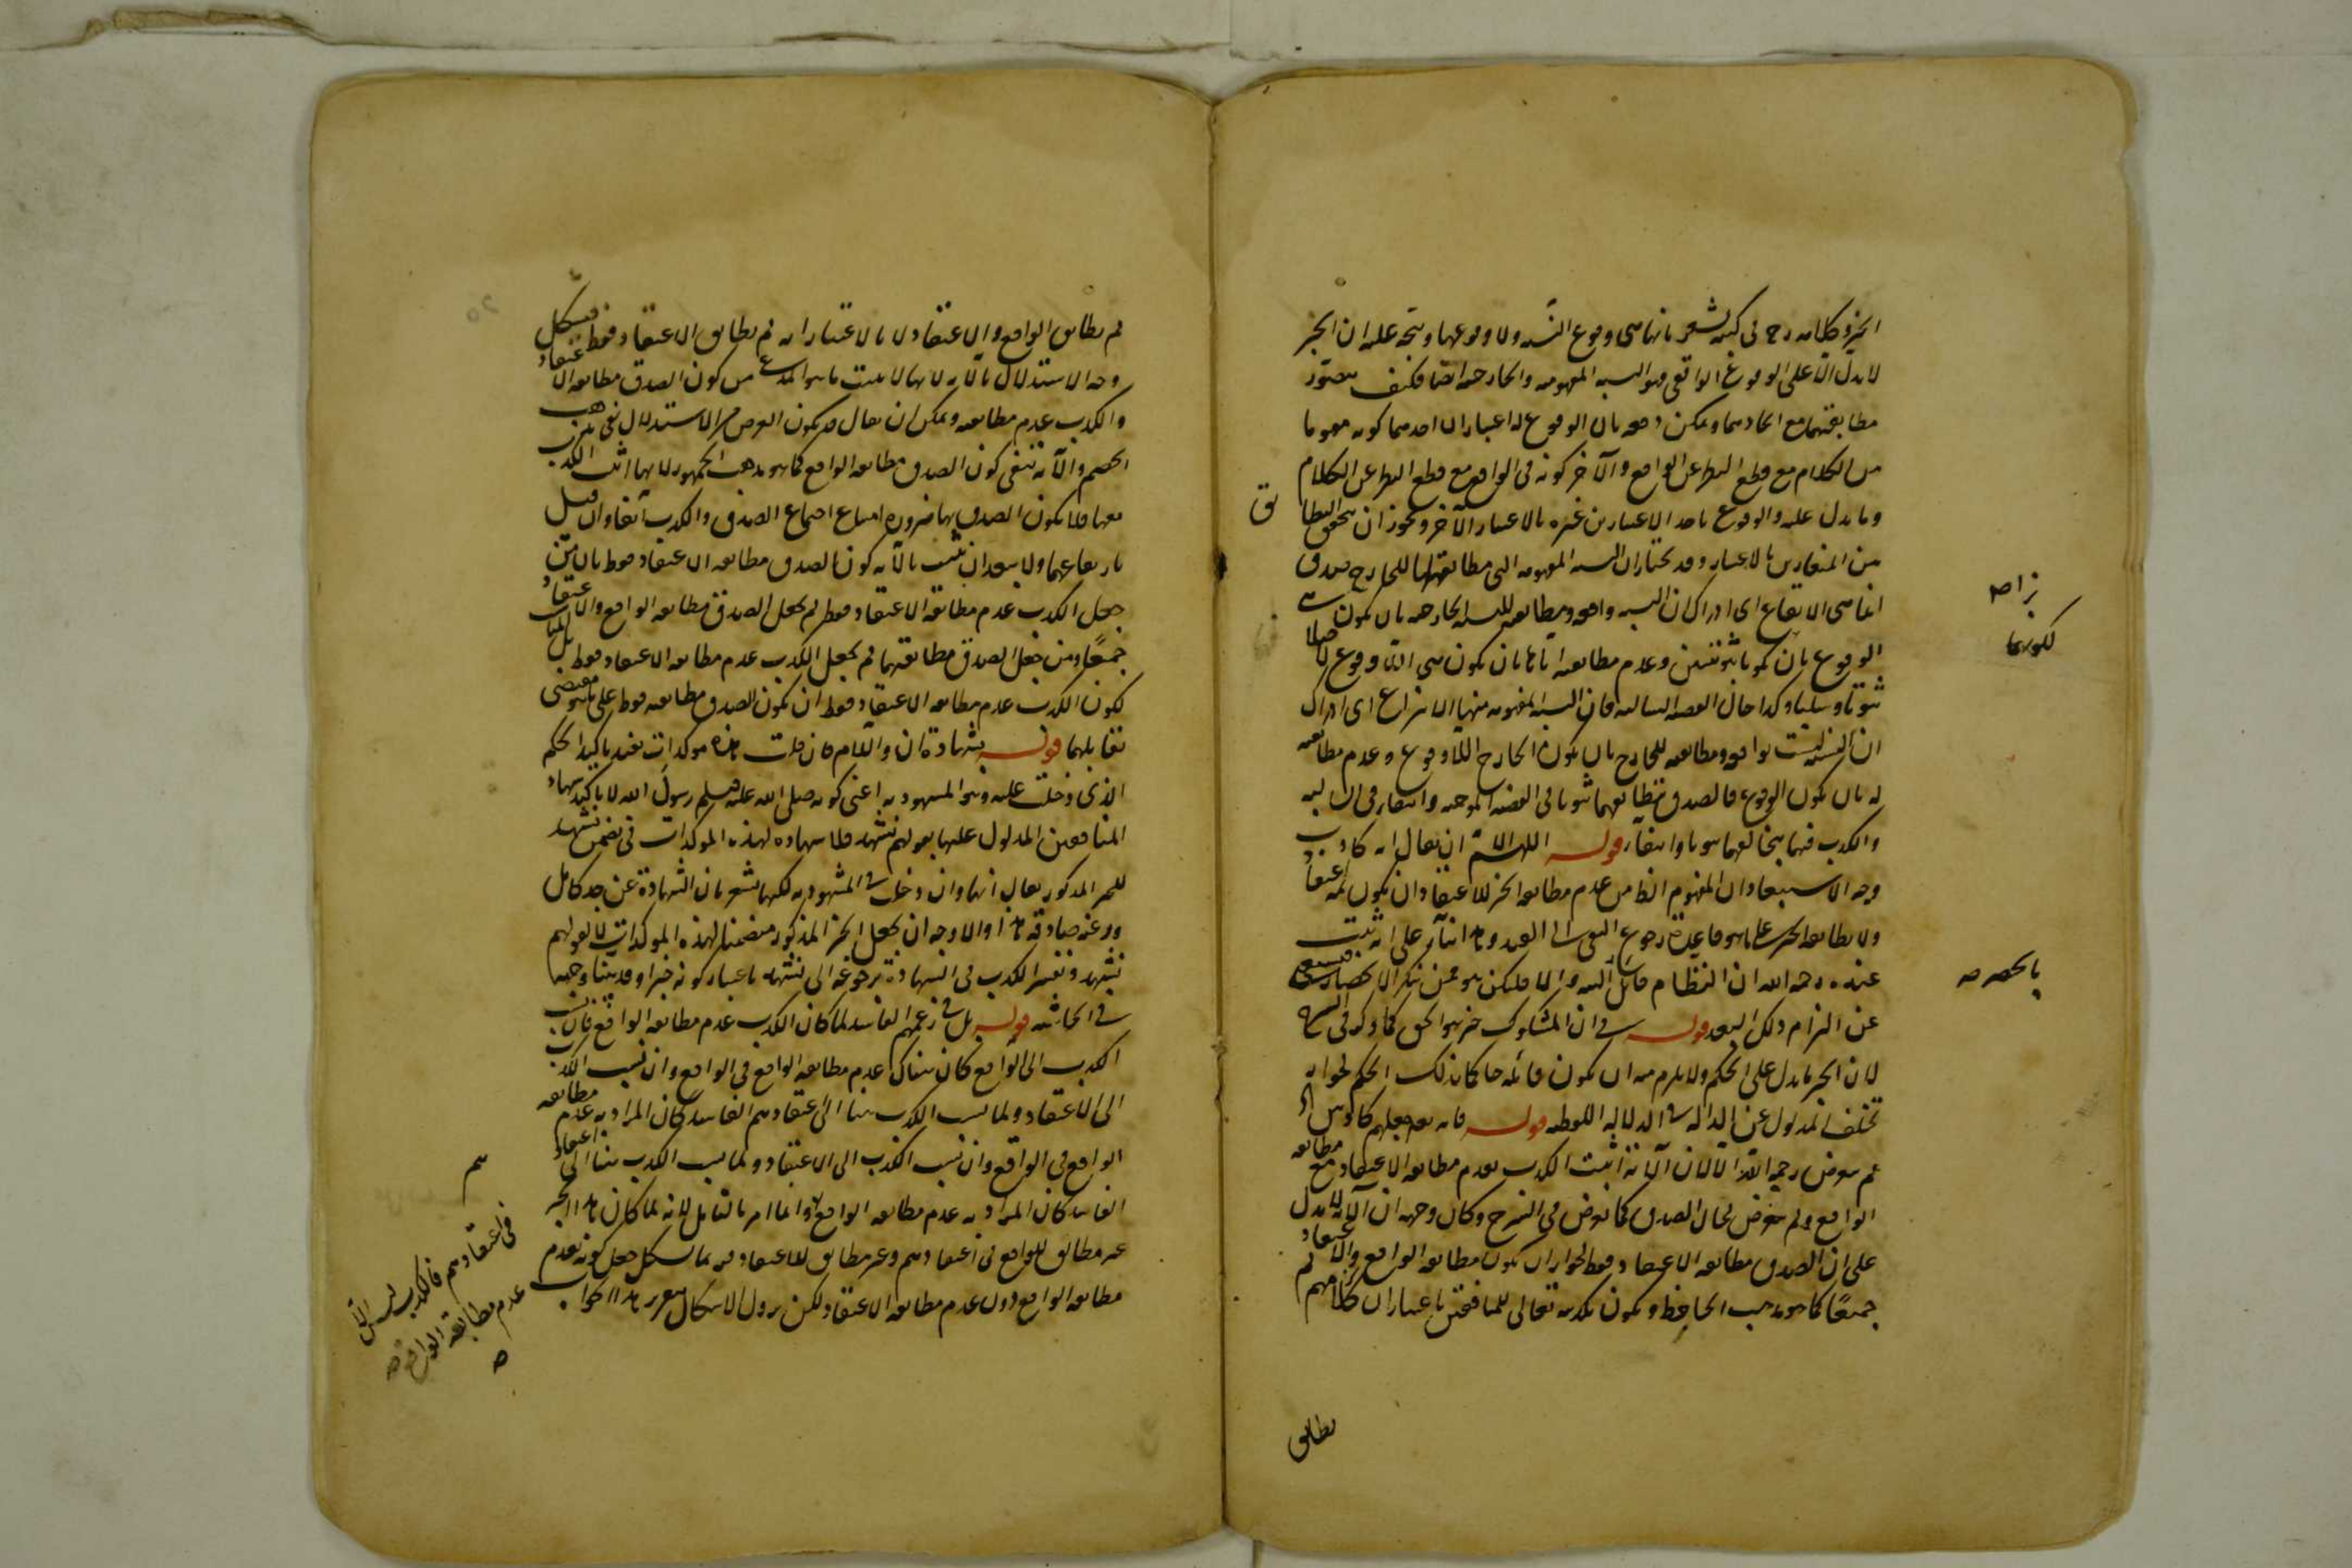 الخبر وكلامه رح في كتبه يشعر بانها هي وقوع النسبة ولا وقوعها ويتجه عليه ان الخبر
لا يدل الا على الوقوع الواقعي وهو النسبة المفهومة والخارجية ايضا فكيف يتصور
مطابقتهما مع اتحادهما ويمكن دفعه بان الوقوع له اعتباران احدهما كونه مفهوما
من الكلام مع قطع النظر عن الواقع والآخر كونه في الواقع مع قطع النظر عن الكلام
وما يدل عليه والوقوع باحد الاعتبارين غيره بالاعتبار الآخر ويجوز ان يتحقق التطابق
بين المتغايرين بالاعتبار وقد يختار ان النسبة المفهومة التي مطابقتها للخارج صدق
انما هي الايقاع اي ادراك ان النسبة واقعة ومطابقته للنسبة الخارجية بان يكون
الوقوع بان يكونا ثبوتيين وعدم مطابقته اياها بان يكون هي اللاوقوع
ثبوتا وسلبا وكذا حال القضية السالبة فان النسبة المفهومة منها الانتزاع اي ادراك
ان النسبة ليست بواقعة ومطابقته للخارج بان يكون الخارج اللاوقوع وعدم مطابقته
له بان يكون الوقوع فالصدق تطابقهما ثبوتا في القضية الموجبة وانتفاء في السالبة
والكذب فيهما تخالفهما ثبوتا وانتفاء قوله اللهم الا ان يقال انه كاذب
وجه الاستبعاد ان المفهوم الظاهر من عدم مطابقة الخبر للاعتقاد ان يكون ثمه اعتقاد
ولا يطابقه الخبر على ما هو قاعدة رجوع النفي الى القيد وهذا بناء على انه ثبت
عنده رحمه الله ان النظام قائل
عن التزام ذلك البعد قوله في ان المشكوك خبر هو الحق كما ذكره في الشرح
لان الخبر ما يدل على الحكم ولا يلزم منه ان يكون قائله حاكما بذلك الحكم لجواز
تخلف المدلول عن الدال في الدلالة اللفظية قوله فانه تعالى جعلهم كاذبين
لم يتعرض رحمه الله الا لان الآية اثبتت الكذب بعدم مطابقة الاعتقاد مع مطابقة
الواقع ولم يتعرض لحال الصدق كما تعرض في الشرح وكان وجهه ان الآية لا تدل
على ان الصدق مطابقة الاعتقاد فقط لجواز ان يكون مطابقة الواقع والاعتقاد
جميعا كما هو مذهب الجاحظ ويكون تكذيبه تعالى للمنافقين باعتبار ان كلامهم لم
يطابق
بالحصر صح
لم يطابق الواقع والاعتقاد لا بالاعتبار انه لم يطابق الاعتقاد فقط فيشكل
وجه الاستدلال بالآية لانها لا تثبت ما هو المدعى من كون الصدق مطابقة الاعتقاد
والكذب عدم مطابقته ويمكن ان يقال قد يكون الغرض من الاستدلال نفي مذهب
الخصم والآية تنفي كون الصدق مطابقة الواقع كما هو مذهب الجمهور لانها اثبتت الكذب
معها فلا يكون الصدق بها ضرورة امتناع اجتماع الصدق والكذب اتفاقا وان قيل
بارتفاعهما ولا يبعد ان يثبت بالآية كون الصدق مطابقة الاعتقاد فقط بان من
جعل الكذب عدم مطابقة الاعتقاد فقط لم يجعل الصدق مطابقة الواقع والاعتقاد
جميعا ومن جعل الصدق مطابقتهما لم يجعل الكذب عدم مطابقة الاعتقاد فقط بل المناسب
لكون الكذب عدم مطابقة الاعتقاد فقط ان يكون الصدق مطابقته فقط على ما هو مقتضى
تقابلهما قوله بشهادة ان واللام فان قلت هذه مؤكدات تفيد تاكيد الحكم
الذي دخلت عليه وهو المشهود به اعني كونه صلى الله عليه وسلم رسول الله لا تاكيد شهادة
المنافقين المدلول عليها بقولهم نشهد فلا شهادة لهذه المؤكدات في تضمن نشهد
للخبر المذكور يقال انها وان دخلت في المشهود به لكنها تشعر بان الشهادة عن جد كامل
ورغبة صادقة هذا والاوجه ان يجعل الخبر المذكور متضمنا لهذه المؤكدات لا بقولهم
نشهد ونفسر الكذب في الشهادة برجوعه الى نشهد باعتبار كونه خبرا وقد بينا وجهه
في الحاشية قوله بل في زعمهم الفاسد لما كان الكذب عدم مطابقة الواقع فان نسب
الكذب الى الواقع كان هناك عدم مطابقة الواقع في الواقع وان نسب الكذب
الى الاعتقاد ولما نسب الكذب هنا الى اعتقادهم الفاسد كان المراد به عدم مطابقة
الواقع في الواقع وان نسب الكذب الى الاعتقاد ولما نسب الكذب هنا الى اعتقاد
الفاسد كان المراد به عدم مطابقة الواقع وانما امر بالتامل لانه لما كان هذا الخبر
غير مطابق للواقع في اعتقادهم وغير مطابق للاعتقاد فربما يشكل جعل كونه بعدم
مطابقة الواقع دون عدم مطابقة الاعتقاد ولكن يزول الاشكال بتقرير هذا الجواب
في اعتقادهم فالكذب ليس الا
عدم مطابقة الواقع صح